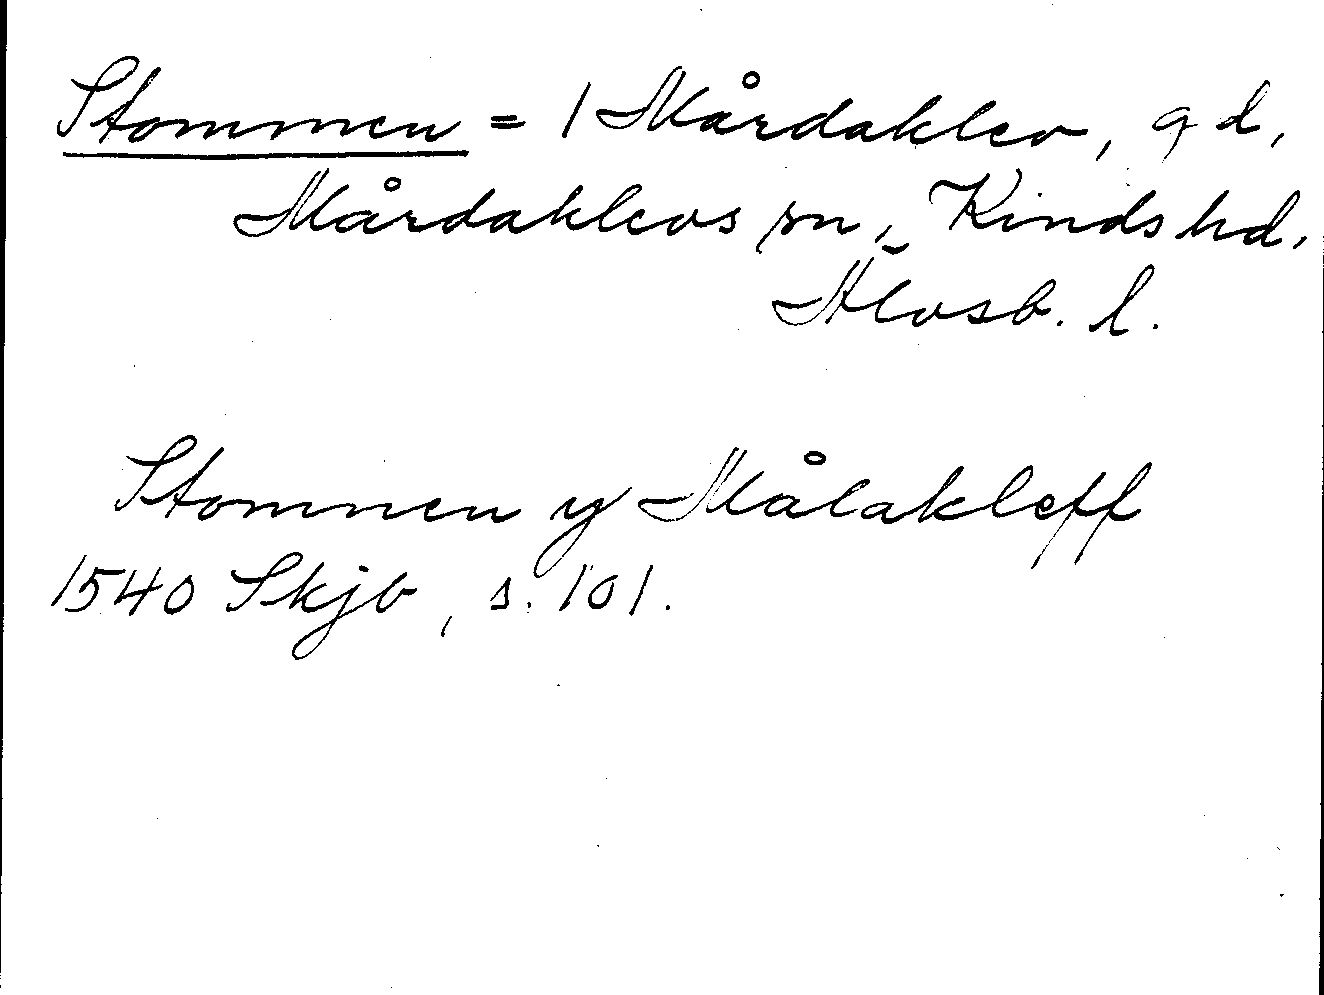 Stommen = 1 Mårdaklev, gd,
Mårdaklevs sn, Kinds hd.
Älvsb. l.
Stomnen y Målakleff
1540 Skjb, s. 101.